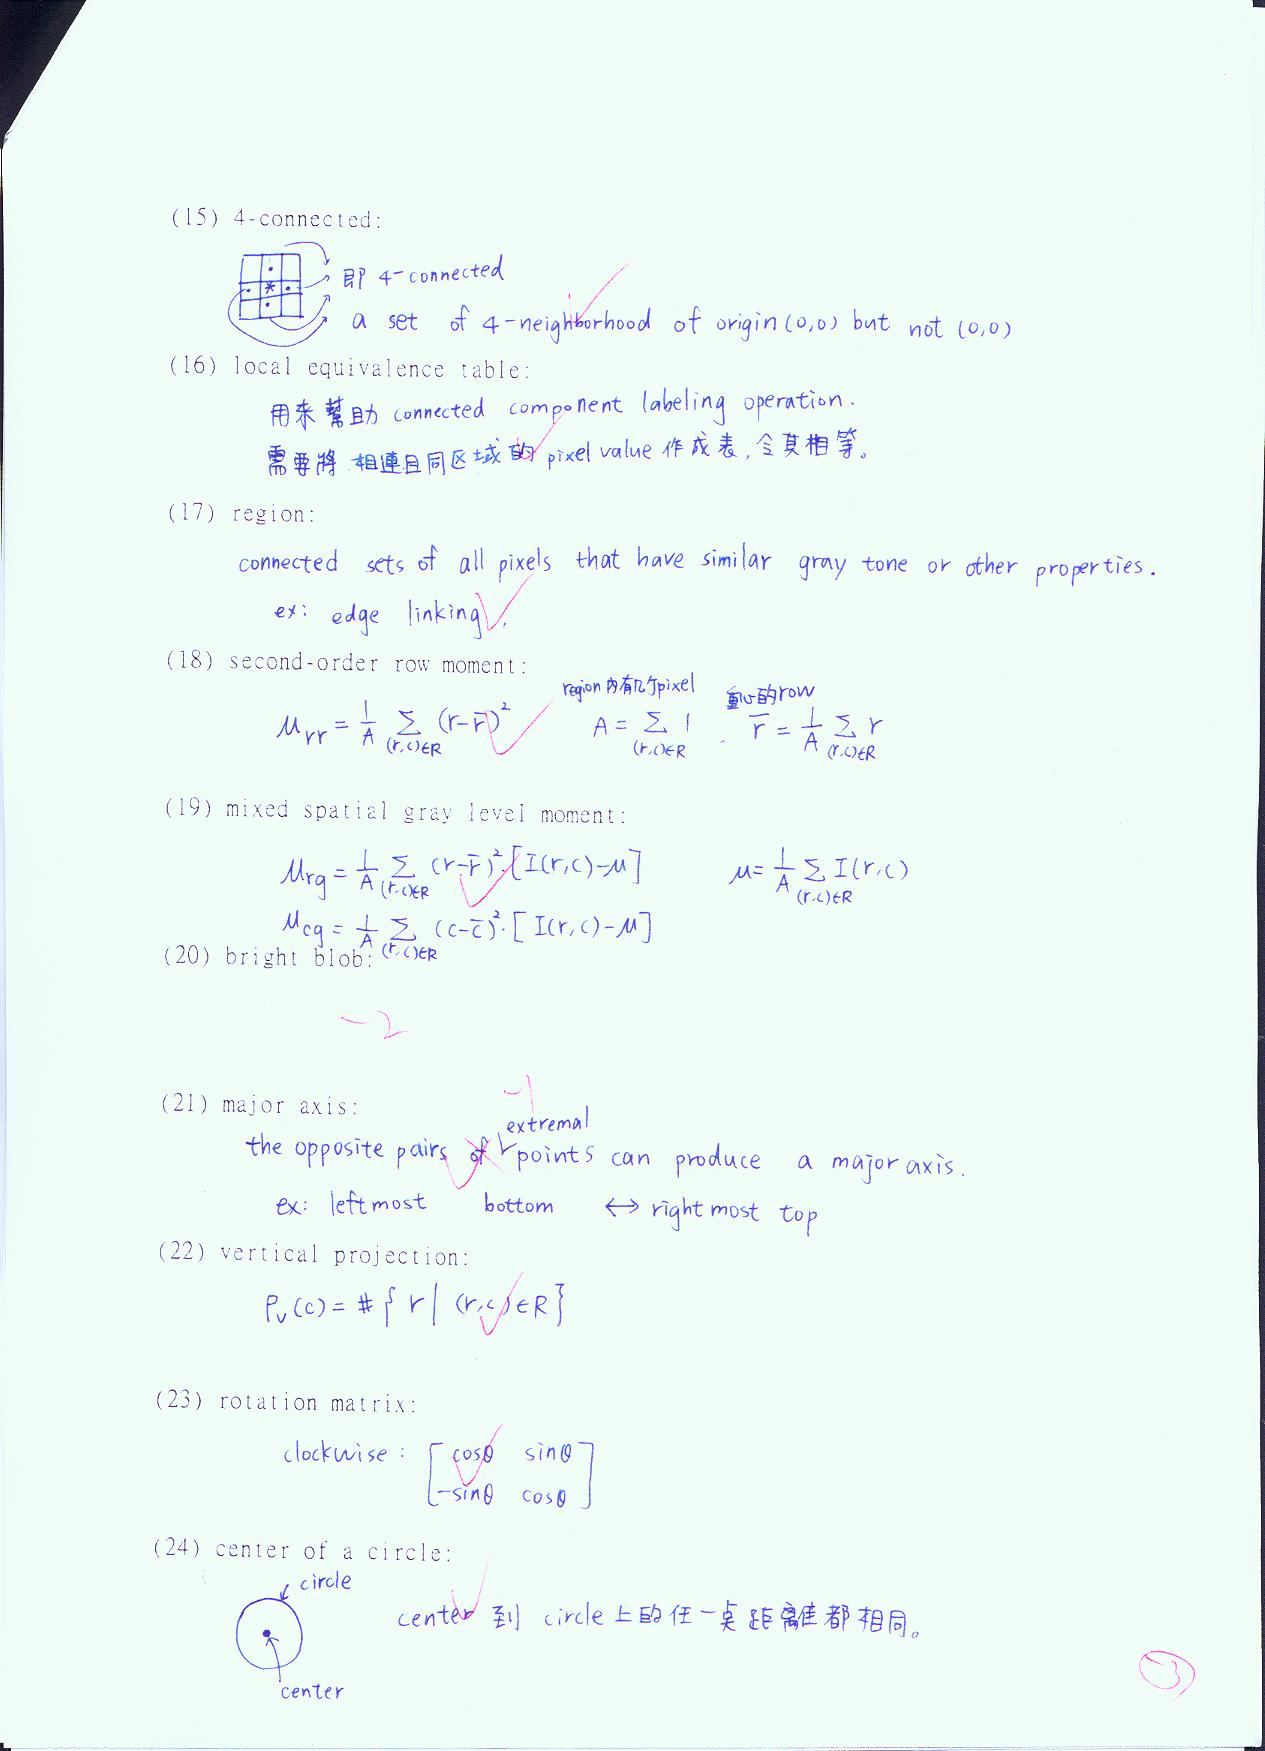 (15) 4-connected:
即 4-connected
a set of 4-neighborhood of origin (0,0) but not (0,0)
(16) local equivalence table:
用來幫助 connected component labeling operation.
需要將 相連且同区域的 pixel value 作成表,令其相等。
(17) region:
connected sets of all pixels that have similar gray tone or other properties.
ex: edge linking.
(18) second-order row moment:
region內有几个pixel 重心的row
μrr = 1/A Σ(r,c)∈R (r-r̄)² A = Σ(r,c)∈R 1 , r̄ = 1/A Σ(r,c)∈R r
(19) mixed spatial gray level moment:
μrg = 1/A Σ(r,c)∈R (r-r̄)²·[I(r,c)-μ] μ = 1/A Σ(r,c)∈R I(r,c)
μcg = 1/A Σ(r,c)∈R (c-c̄)²·[I(r,c)-μ]
(20) bright blob:
-2
(21) major axis:
-1
extremal
the opposite pairs of points can produce a major axis.
ex: leftmost bottom ↔ rightmost top
(22) vertical projection:
Pv(c) = #{r | (r,c)∈R}
(23) rotation matrix:
clockwise: [cosθ sinθ
-sinθ cosθ]
(24) center of a circle:
circle
center 到 circle上的任一桌距離都相同。
center
-3